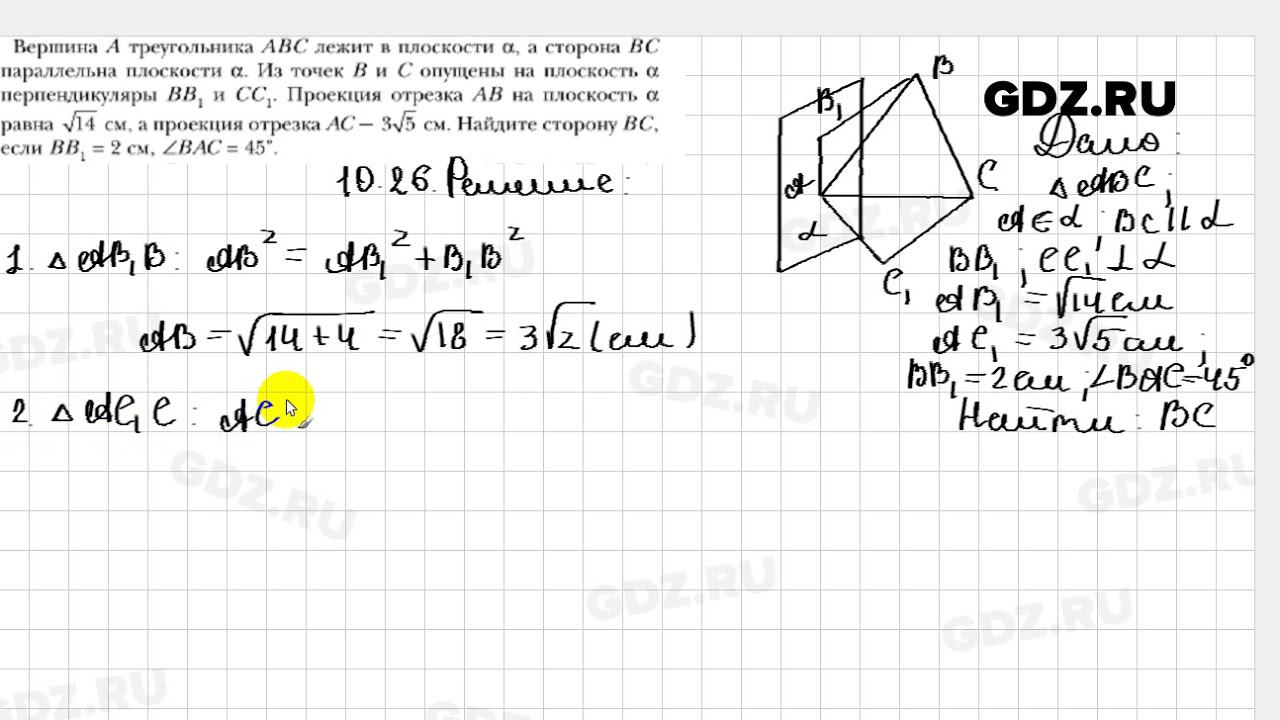 Вершина A треугольника ABC лежит в плоскости α, а сторона BC
параллельна плоскости α. Из точек B и C опущены на плоскость α
перпендикуляры BB₁ и CC₁. Проекция отрезка AB на плоскость α
равна √14 см, а проекция отрезка AC — 3√5 см. Найдите сторону BC,
если BB₁ = 2 см, ∠BAC = 45°.
10.26. Решение:
1. △AB₁B: AB² = AB₁² + B₁B²
AB = √14+4 = √18 = 3√2 (см)
2. △AC₁C: AC
B
B₁
A
C
α
C₁
GDZ.RU
Дано:
△ABC;
A∈α; BC||α
BB₁; CC₁⊥α
AB₁ = √14 см
AC₁ = 3√5 см;
BB₁ = 2 см; ∠BAC=45°
Найти: BC
GDZ.RU
GDZ.RU
GDZ.RU
GDZ.RU
GDZ.RU
GDZ.RU
GDZ.RU
GDZ.RU
GDZ.RU